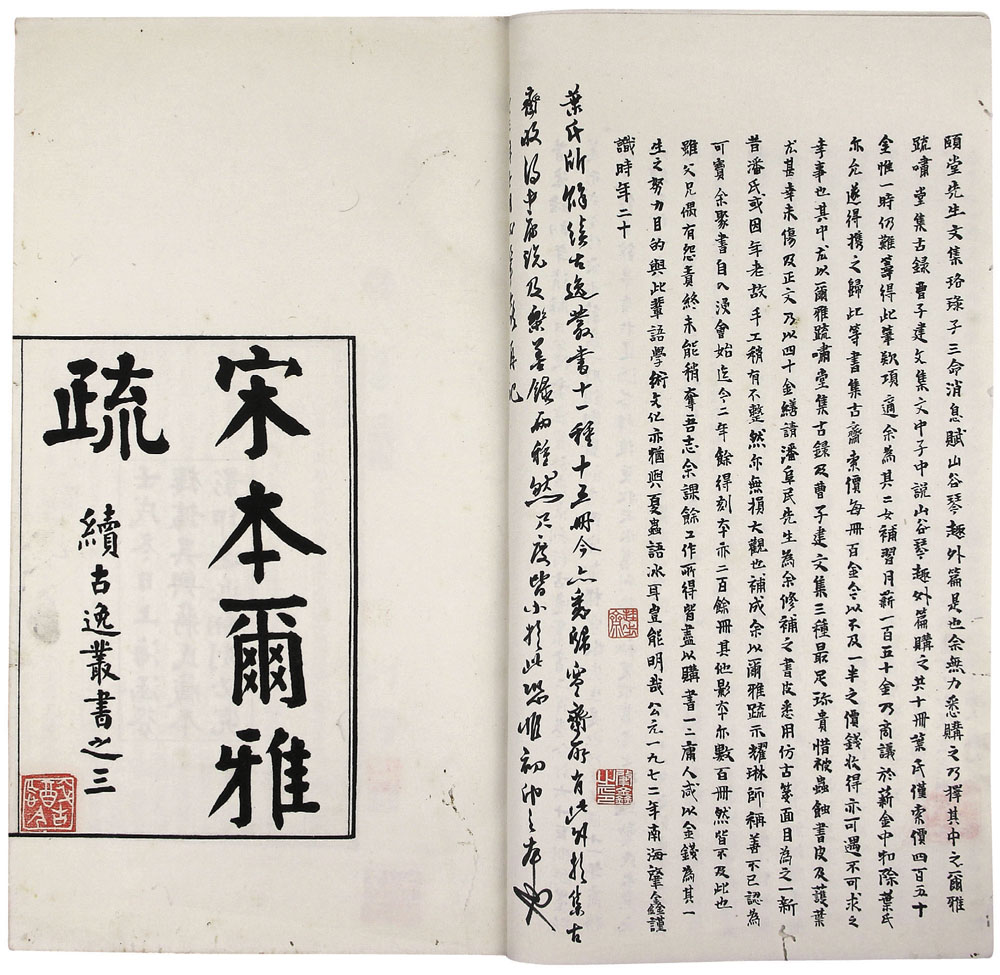 頤堂先生文集珞琭子三命消息賦山谷琴趣外篇是也余無力悉購之乃擇其中之爾雅
疏嘯堂集古錄曹子建文集文中子中說山谷琴趣外篇購之共十冊葉氏僅索價四百五十
金惟一時仍難籌得此筆欵項適余為其二女補習月薪一百五十金乃商議於薪金中扣除葉氏
亦允遂得携之歸此等書集古齋索價每冊百金今以不及一半之價錢收得亦可遇不可求之
幸事也其中尤以爾雅疏嘯堂集古錄及曹子建文集三種最足珍貴惜被蟲蝕書皮及護葉
尤甚幸未傷及正文乃以四十金繕請潘阜民先生為余修補之書皮悉用仿古箋面目為之一新
昔潘氏或因年老故手工稍有不整然亦無損大觀也補成余以爾雅疏示耀琳師稱善不已認為
可寶余聚書自入浸會始迄今二年餘得刻本亦二百餘冊其他影本亦數百冊然皆不及此也
雖父兄偶有怨責終未能稍奪吾志余課餘工作所得皆盡以購書一二庸人咸以金錢為其一
生之努力目的與此輩語學術文化亦猶與夏蟲語冰耳豈能明哉公元一九七二年南海肇鑫謹
識時年二十
葉氏所餘續古逸叢書十一種十五冊今亦盡歸寒齋所有此外於集古
齋收得中庸說及樂善錄兩種然尺度皆小於此恐非初印之本也
宋本爾雅
疏
續古逸叢書之三